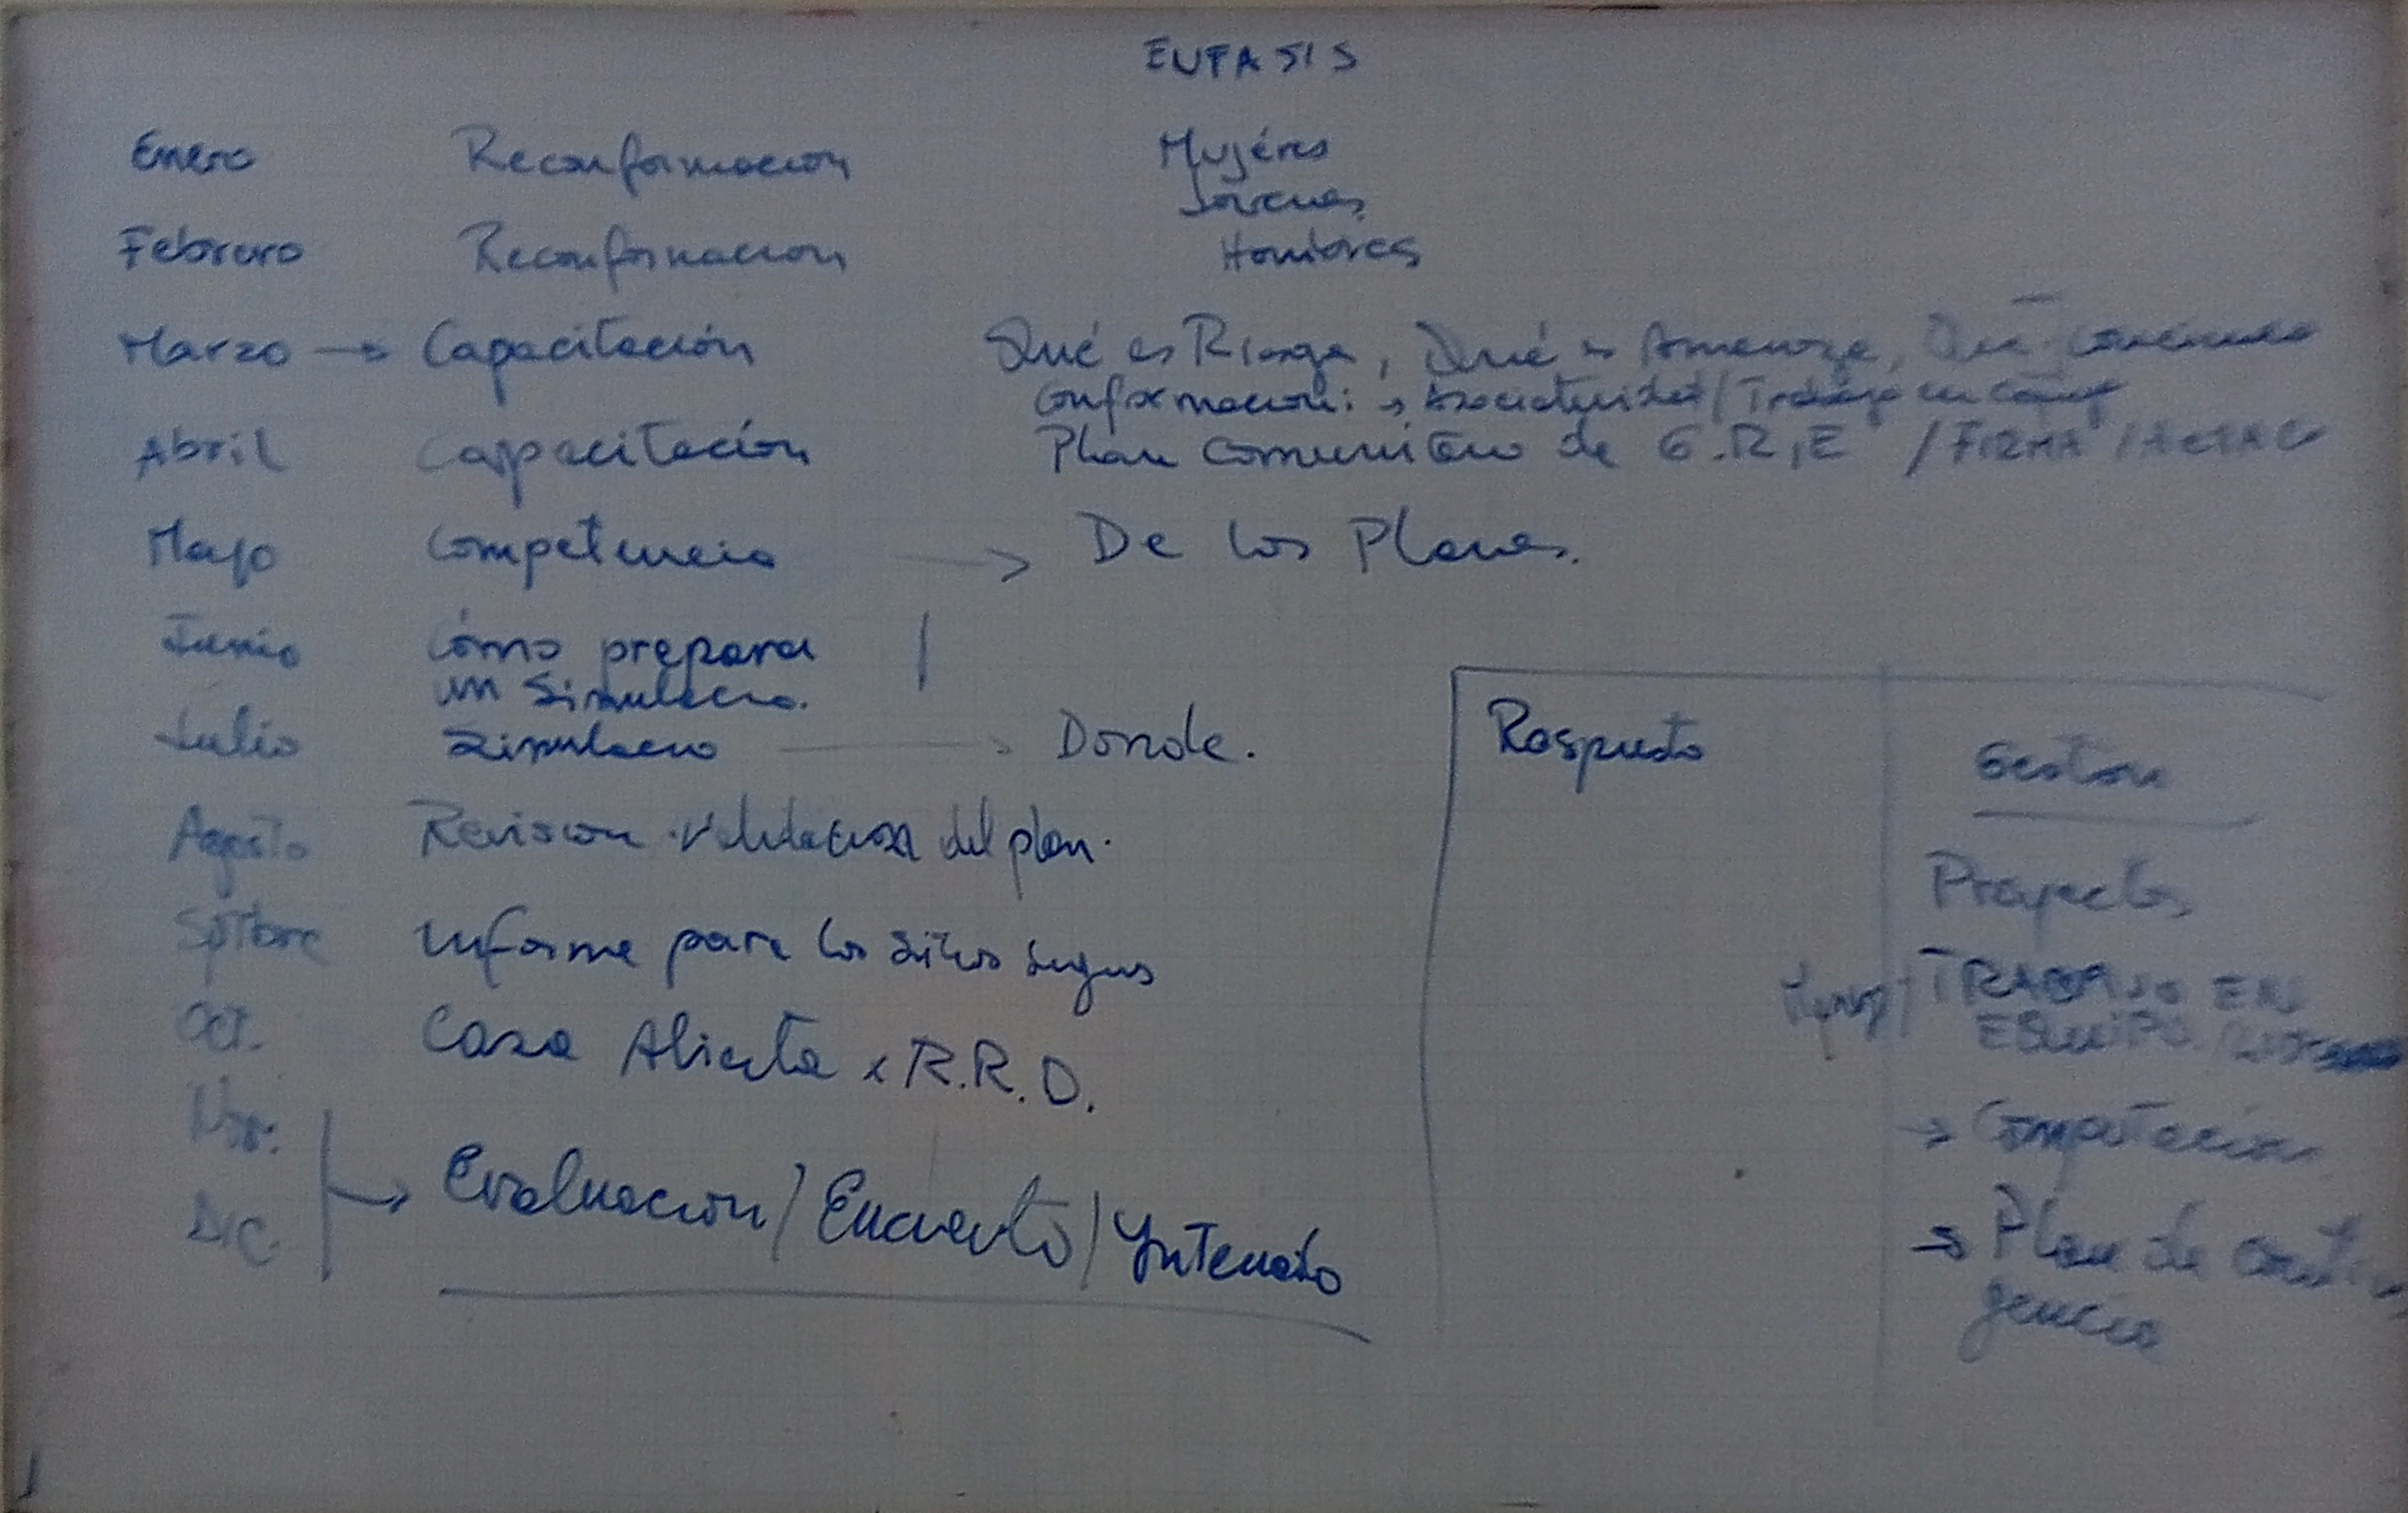 ENFASIS
Enero Reconformacion Mujéres
Jovenes
Febrero Reconformacion Hombres
Marzo → Capacitación Qué es Riesgo, Qué es Amenaza, Que
Conformacion: → Asociatividad / Trabajo en
Abril Capacitación Plan comunitario de G.R,E / FIRMA /
Mayo Competencia → De los Planes.
Junio Cómo preparar
un Simulacro.
Julio Simulacro → Donde.
Agosto Revision Validacion del plan.
Sptbre Informe para los sitios seguros
Oct. Casa Abierta x R.R.D.
Nov.
Dic. → Evaluacion / Encuentro /
Respuesta Gestion
Proyectos
TRABAJO EN
EQUIPO
→
→ Plan de contin
gencia